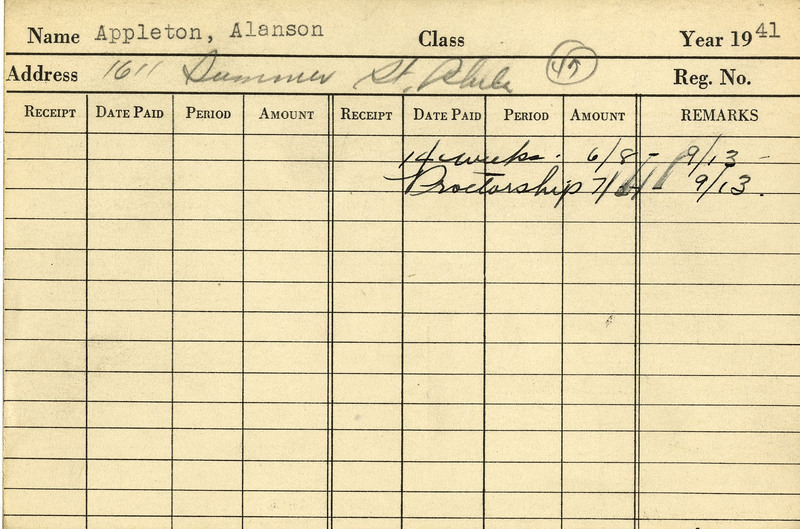 Name Appleton, Alanson Class Year 1941
Address 1611 Summer St. Phila 45 Reg. No.
RECEIPT DATE PAID PERIOD AMOUNT RECEIPT DATE PAID PERIOD AMOUNT REMARKS
14 weeks. 6/8 - 9/13 -
Proctorship 9/13.